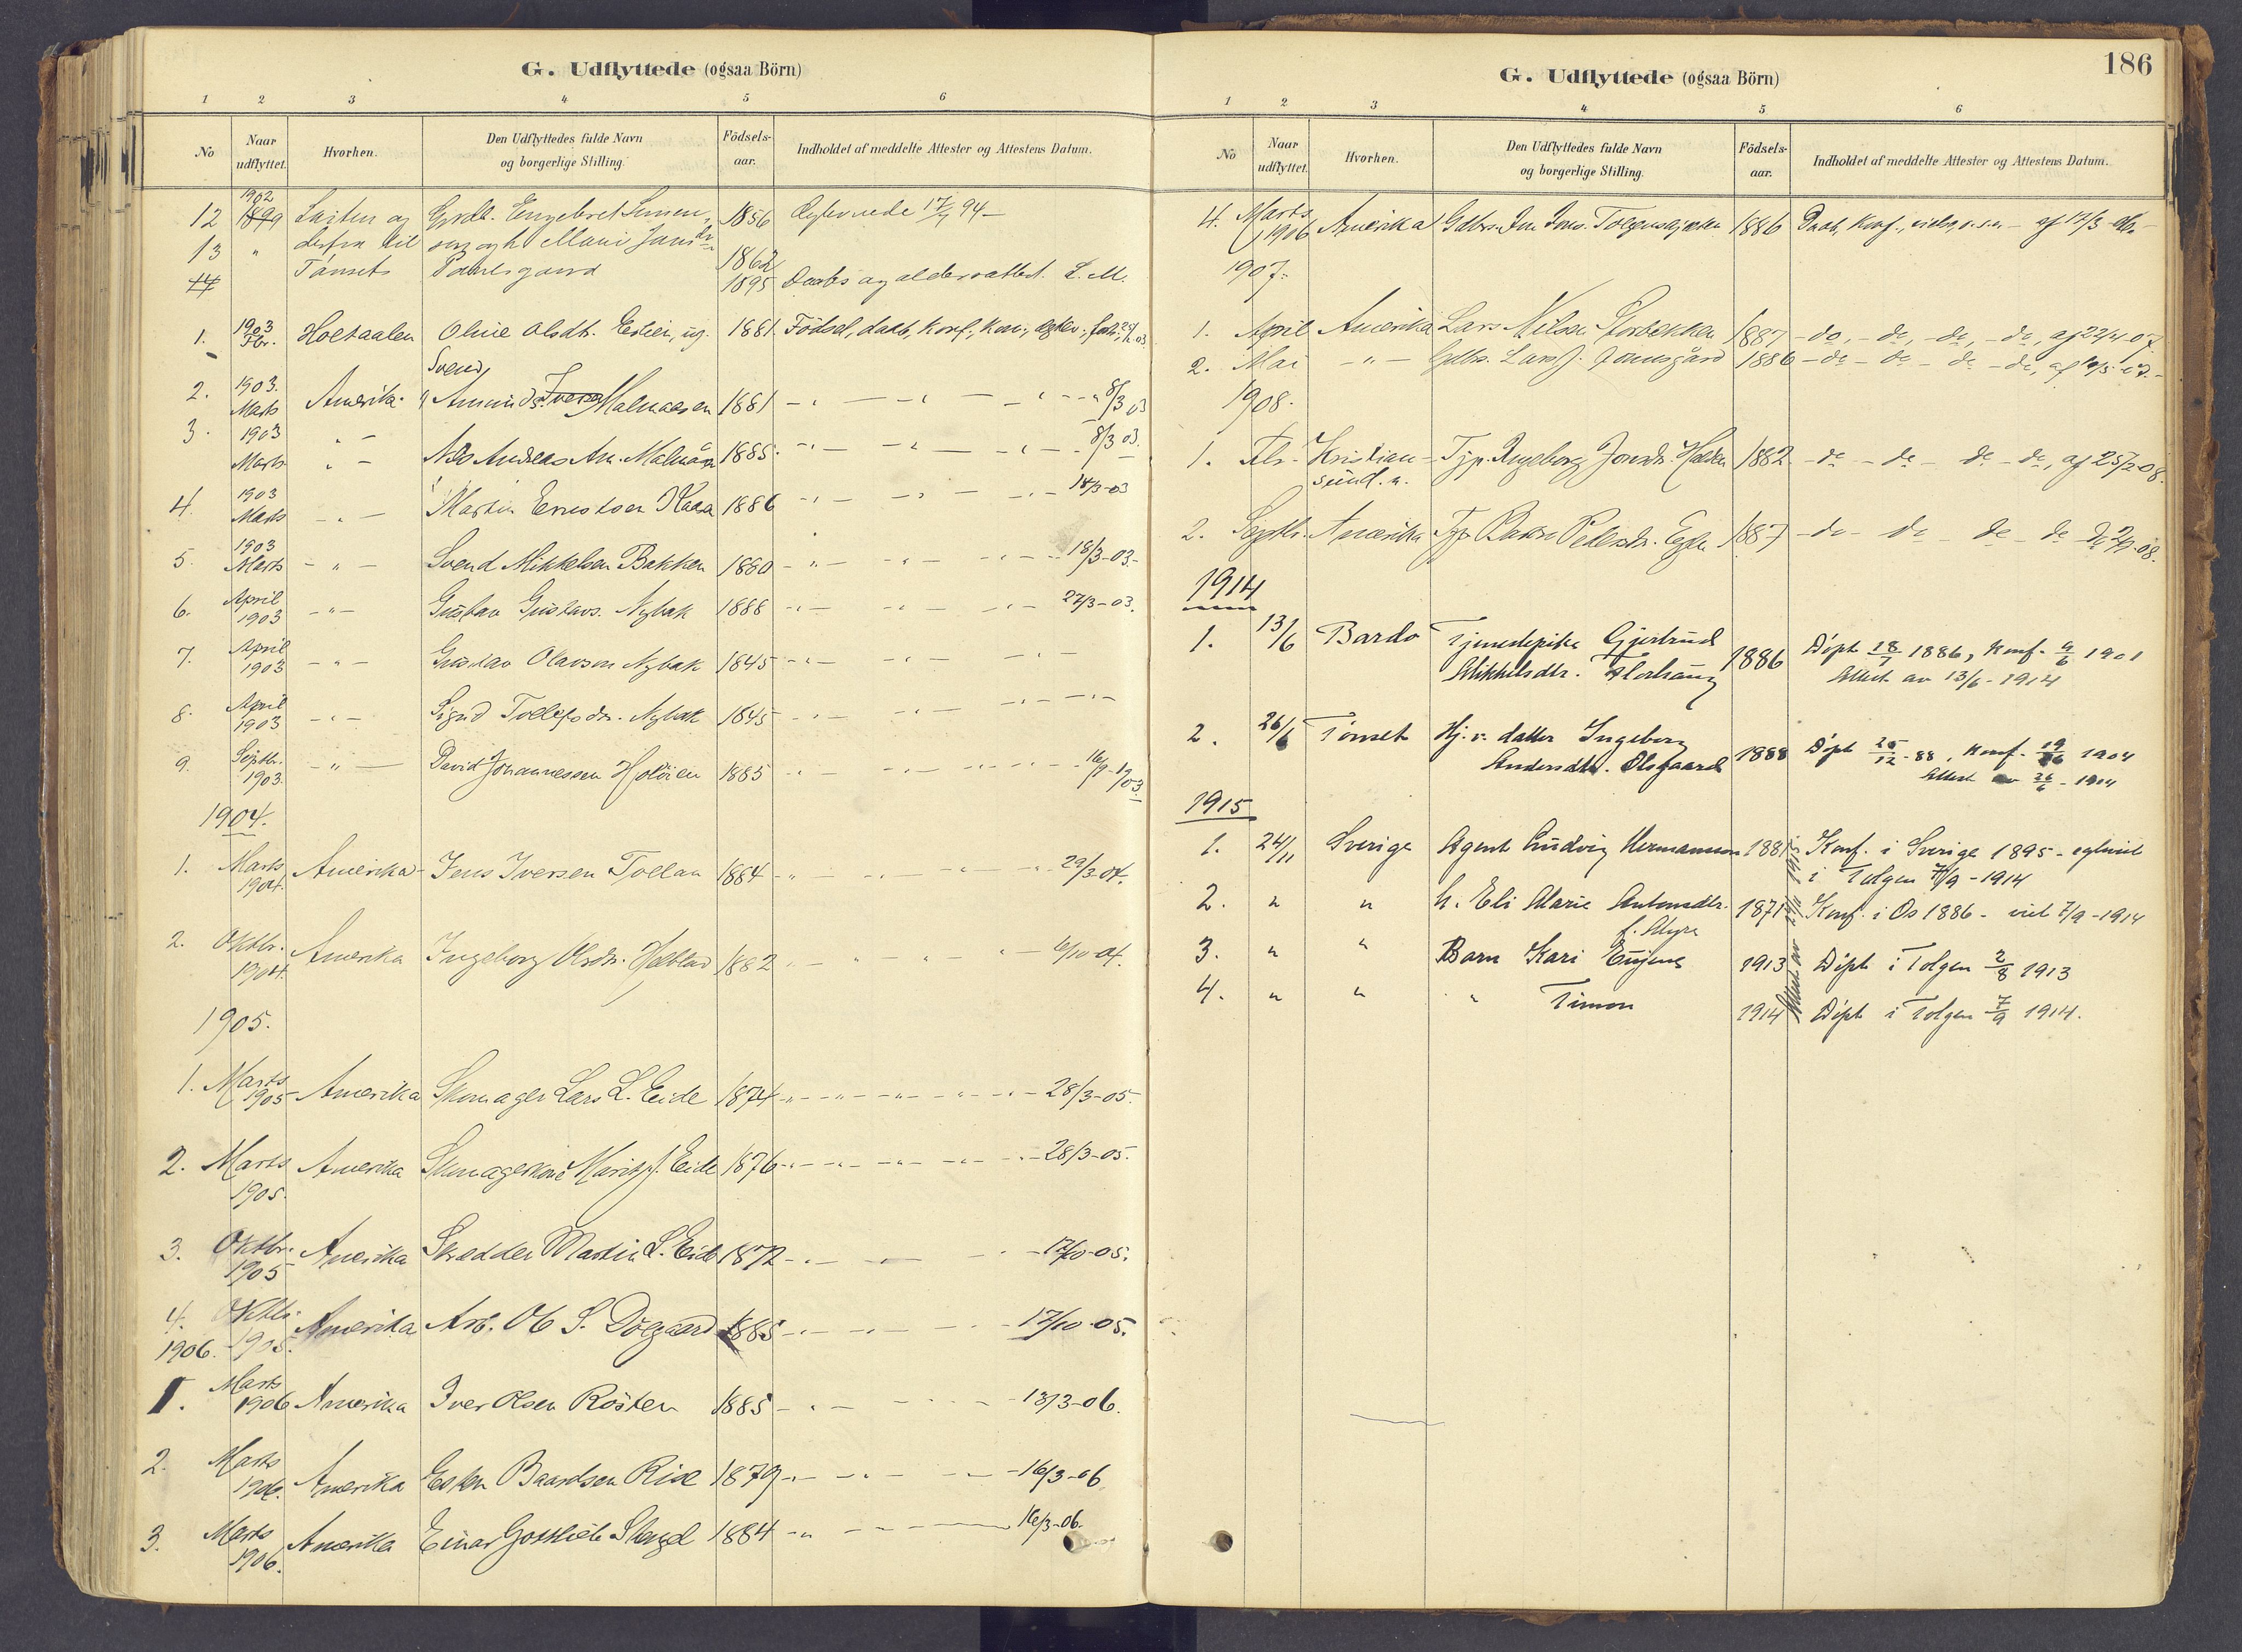 G. Udflyttede (ogsaa Börn)
1 2 3 4 5 6
No
Naar udflyttet.
Hvorhen.
Den Udflyttedes fulde Navn og borgerlige Stilling.
Födsels-aar.
Indholdet af meddelte Attester og Attestens Datum.
12 1902 1899 og Engebret 1856 94 –
13 " derfra til og h. Jonsdr.
Tønset 1862
14 1895 Daabs og aldersattest. L. M.
1. 1903 Fbr. Holtaalen Oline Olsdt. ug. 1881. Födsel, daab, Konf., 03
Svend
2. 1903. Marts Amerika. Amunds. Iversen Malmaasen 1881 – " – " – " 8/3 03
3. 1903 Marts " – Nils Andreas Am. Malmåsen 1885. – " – " – " 8/3 03.
4. 1903 Marts – " – Martin 1886 – " – " – " – 18/3-03
5. 1903 Marts – " – Svend Mikkelsen Bakken 1880 – " – " – " – 18/3-03.
6. April 1903 – " – Gustav Gustavs. Nybak 1888 – " – " – " – 27/3-03.
7. April 1903 – " – Gustav Olavson Nybak 1845 – " – " – " –
8. April 1903 – " – Sigrid Tollefsdr. Nybak 1845 – " – " – " –
9. Septbr. 1903. – " – David Johannessen Holöien 1885 – " – " – " 16/9-1903.
1904.
1. Marts 1904. Amerika Jens Iversen Tollan 1884 – " – " – " 29/3-04.
2. Oktbr. 1904. Amerika Ingeborg Olsdr. 1882 " – " – " – " – 6/10-04.
1905.
1. Marts 1905 – Amerika Skomager Lars L. Eide 1874 – " – " – " – " – 28/3-05.
2. Marts 1905. Amerika Skomagerkone Marit J. Eide 1876 – " – " – " – " – 28/3-05.
3. Oktbr. 1905 Amerika Skrædder Martin L. Eide 1872 – " – " – " – 17/10-05.
4. Oktbr 1905. Amerika Arb. Ole S. 1885 – " – " – " – 17/10-05.
1906.
1. Marts 1906 Amerika Iver Olsen Røsten 1885 – " – " – 13/3-06.
2. Marts 1906. Amerika Esten Baardsen Rise 1879 – " – " – " – 16/3-06
3. Marts 1906. Amerika Einar Gottlieb 1884 – " – " – 16/3-06.
186
G. Udflyttede (ogsaa Börn)
1 2 3 4 5 6
No
Naar udflyttet.
Hvorhen.
Den Udflyttedes fulde Navn og borgerlige Stilling.
Födsels-aar.
Indholdet af meddelte Attester og Attestens Datum.
4. Marts 1906 Amerika Jon Jons. 1886 Daab, Konf., – af 17/3
1907.
1. April Amerika Lars Nilsen Storbekken 1887 – do, – do, – do, – do, af 22/4 07.
2. Mai – " – Gdbr. Lars J. 1886 – do – do – do – do, af
1908.
1. Fbr. Kristian-sund. n. Tjp. Ingeborg Jonsdr. Holden 1882 – do – do – do – do, af 25/2 08.
2. Septbr. Amerika Tjp. Pedersdr. 1887 – do – do – do – do 08.
1914
1. 13/6 Bardo Tjenestepike Gjertrud
Mikkelsdtr. 1886 Døpt 18/7 1886, Konf. 9/6 1901
Attest av 13/6 - 1914
2. 26/6 Tönset Hj. v. datter Ingeborg
Andersdtr. Olsgaard 1888 Døpt 25/12 - 88, Konf. 1904
Attest av 26/6 - 1914
1915
1. 24/11 Sverige Agent Ludvig Hermanson 1881 Konf. i Sverige 1895 - egteviet
i Tolgen 7/9 - 1914
2. " " h. Eli Marie Antonsdtr. 1871 Konf. i Os 1886 - viet 7/9 - 1914
f. Myre
3. " " Barn Kari Eugenie 1913 Døpt i Tolgen 2/8 1913
4. " " " Timon 1914 Døpt i Tolgen 7/9 1914.
Attest av 24/11 1915